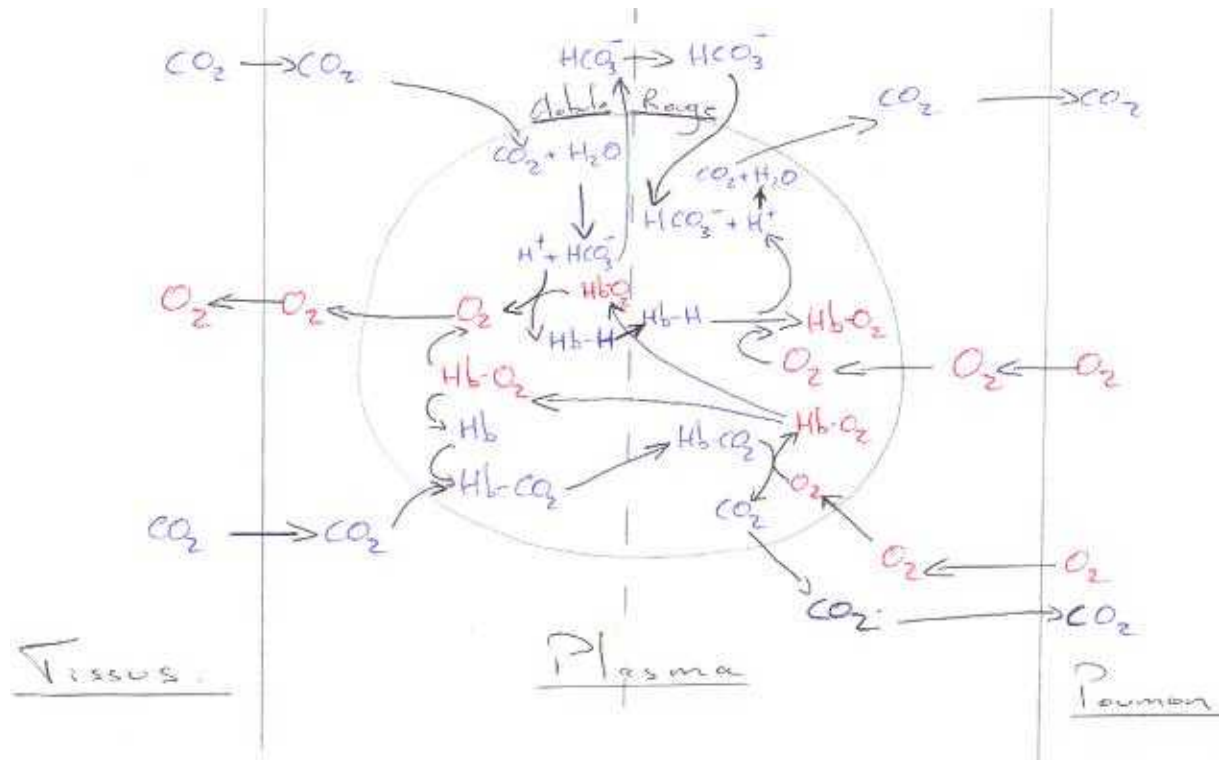 CO₂ → CO₂
HCO₃⁻ → HCO₃⁻
Globule Rouge
CO₂ → CO₂
CO₂ + H₂O
CO₂ + H₂O
HCO₃⁻ + H⁺
H⁺ + HCO₃⁻
HbO₂
O₂ ← O₂ ← O₂
Hb-H → Hb-H → Hb-O₂
O₂ ← O₂ ← O₂
Hb-O₂
Hb-O₂
Hb
Hb-CO₂
Hb-CO₂
O₂
CO₂ → CO₂
CO₂
O₂ ← O₂
CO₂ → CO₂
Tissus.
Plasma
Poumon